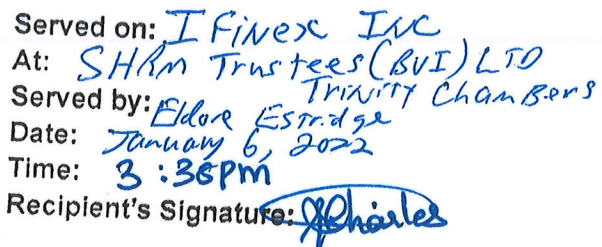 Served on: IFinex INC
At: SHRM Trustees (BVI) LTD
Trinity Chambers
Served by: Eldore Estridge
Date: January 6, 2022
Time: 3:36pm
Recipient's Signature: Charles